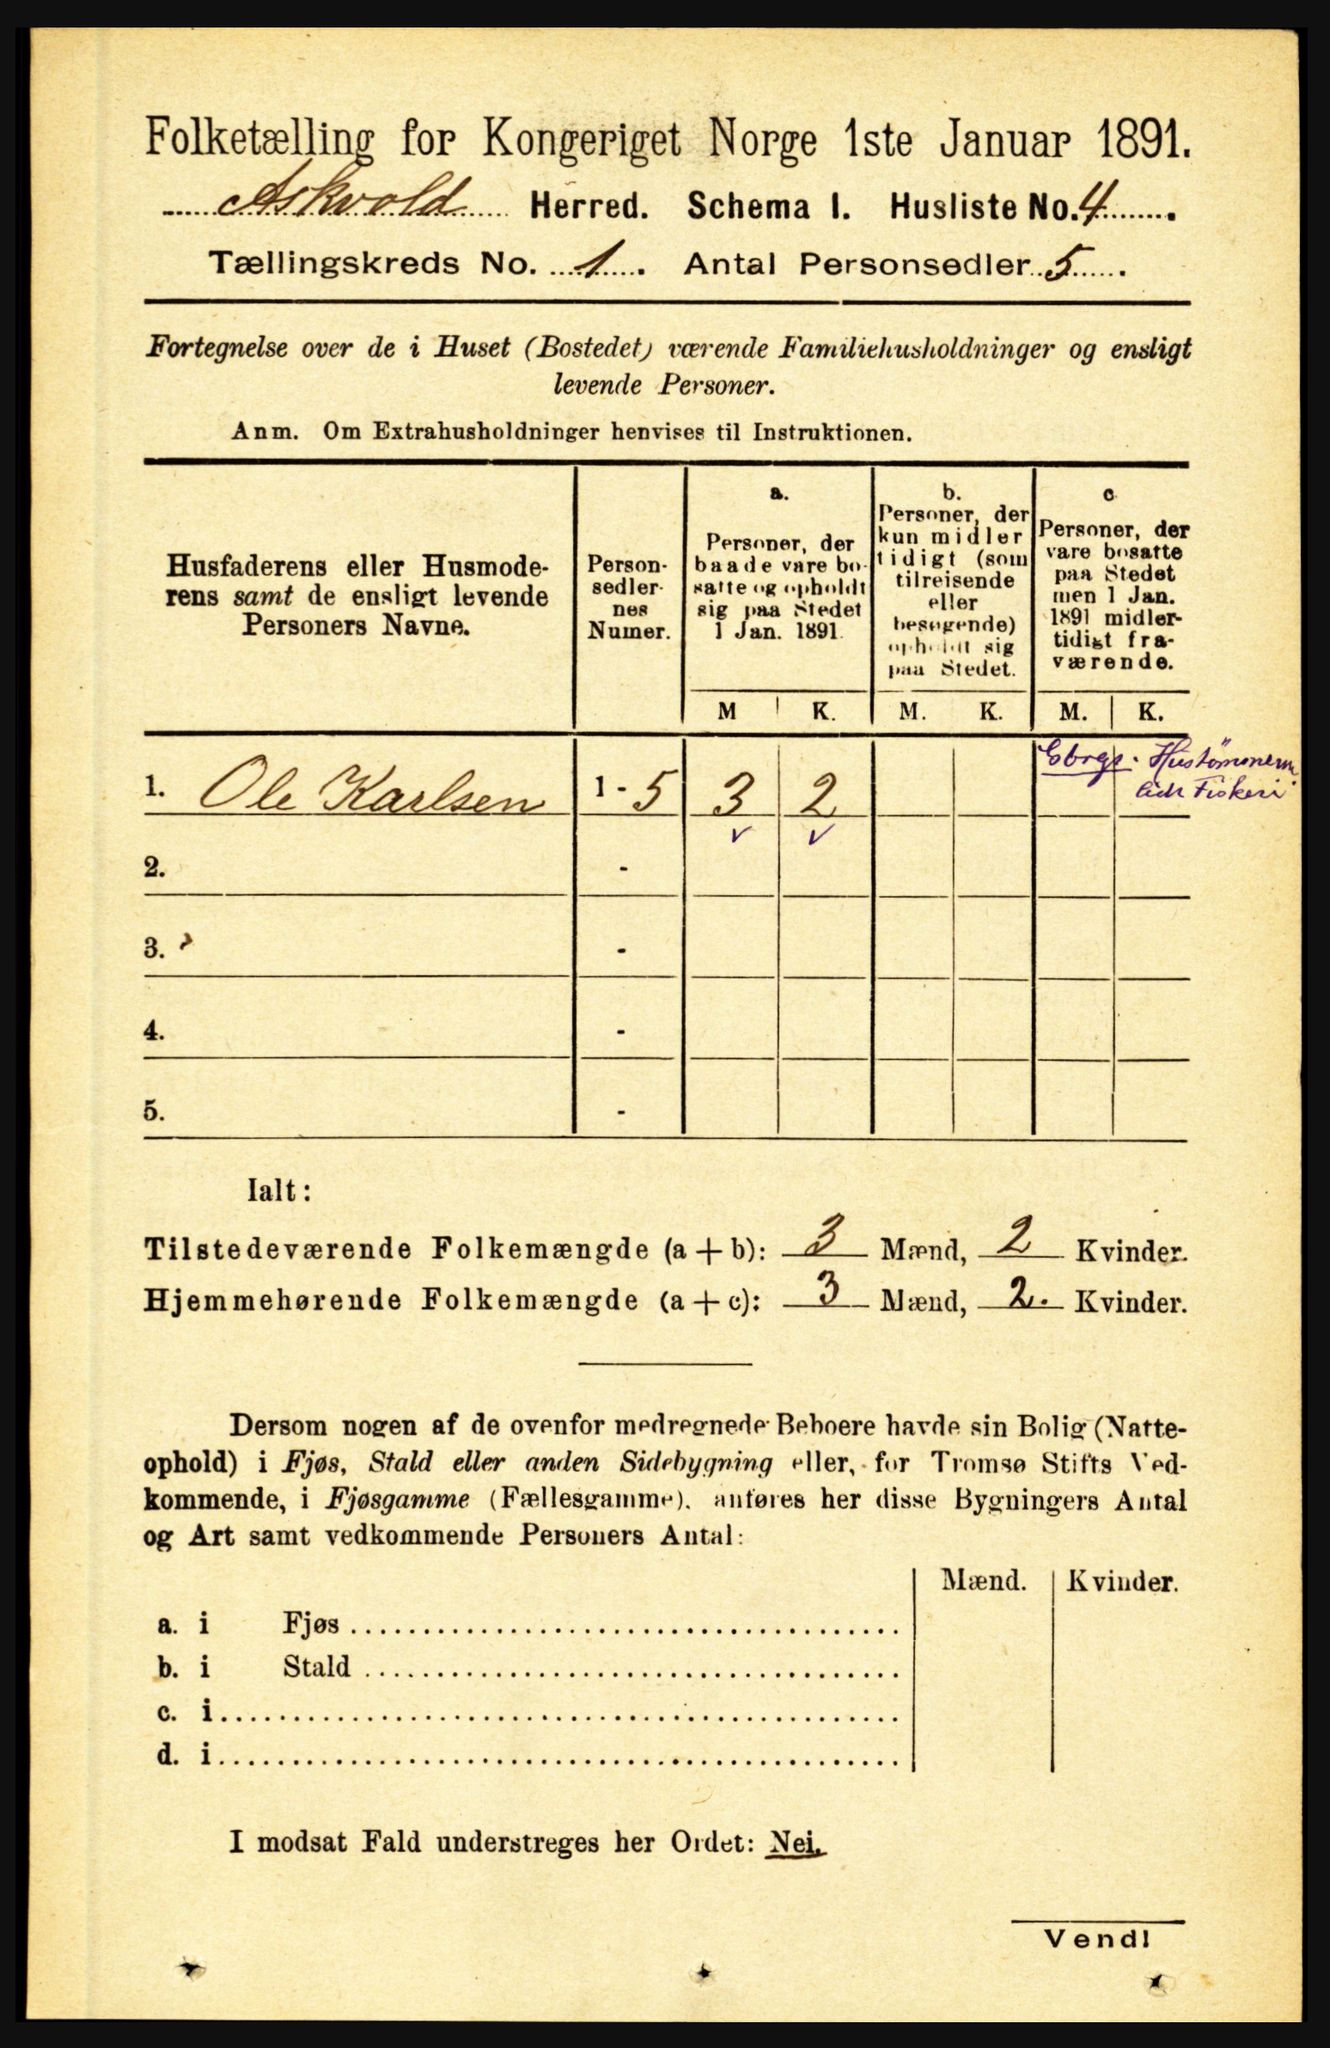 Folketælling for Kongeriget Norge 1ste Januar 1891.
Askvold Herred. Schema I. Husliste No. 4
Tællingskreds No. 1. Antal Personsedler 5.
Fortegnelse over de i Huset (Bostedet) værende Familiehusholdninger og ensligt
levende Personer.
Anm. Om Extrahusholdninger henvises til Instruktionen.
Husfaderens eller Husmode-
rens samt de ensligt levende
Personers Navne.
Person-
sedler-
nes
Numer.
a.
Personer, der
baade vare bo-
satte og opholdt
sig paa Stedet
1 Jan. 1891.
b.
Personer, der
kun midler
tidigt (som
tilreisende
eller
besøgende)
opholdt sig
paa Stedet.
c
Personer, der
vare bosatte
paa Stedet
men 1 Jan.
1891 midler-
tidigt fra-
værende.
M K. M. K. M. K.
1. Ole Karlsen 1 - 5 3 2
Hustömmerm.
Fiskeri
2. -
3. -
4. -
5. -
Ialt:
Tilstedeværende Folkemængde (a + b): 3 Mænd, 2 Kvinder.
Hjemmehørende Folkemængde (a + c): 3 Mænd, 2. Kvinder.
Dersom nogen af de ovenfor medregnede Beboere havde sin Bolig (Natte-
ophold) i Fjøs, Stald eller anden Sidebygning eller, for Tromsø Stifts Ved-
kommende, i Fjøsgamme (Fællesgamme), anføres her disse Bygningers Antal
og Art samt vedkommende Personers Antal:
Mænd. Kvinder.
a. i Fjøs
b. i Stald
c. i
d. i
I modsat Fald understreges her Ordet: Nei.
Vend!